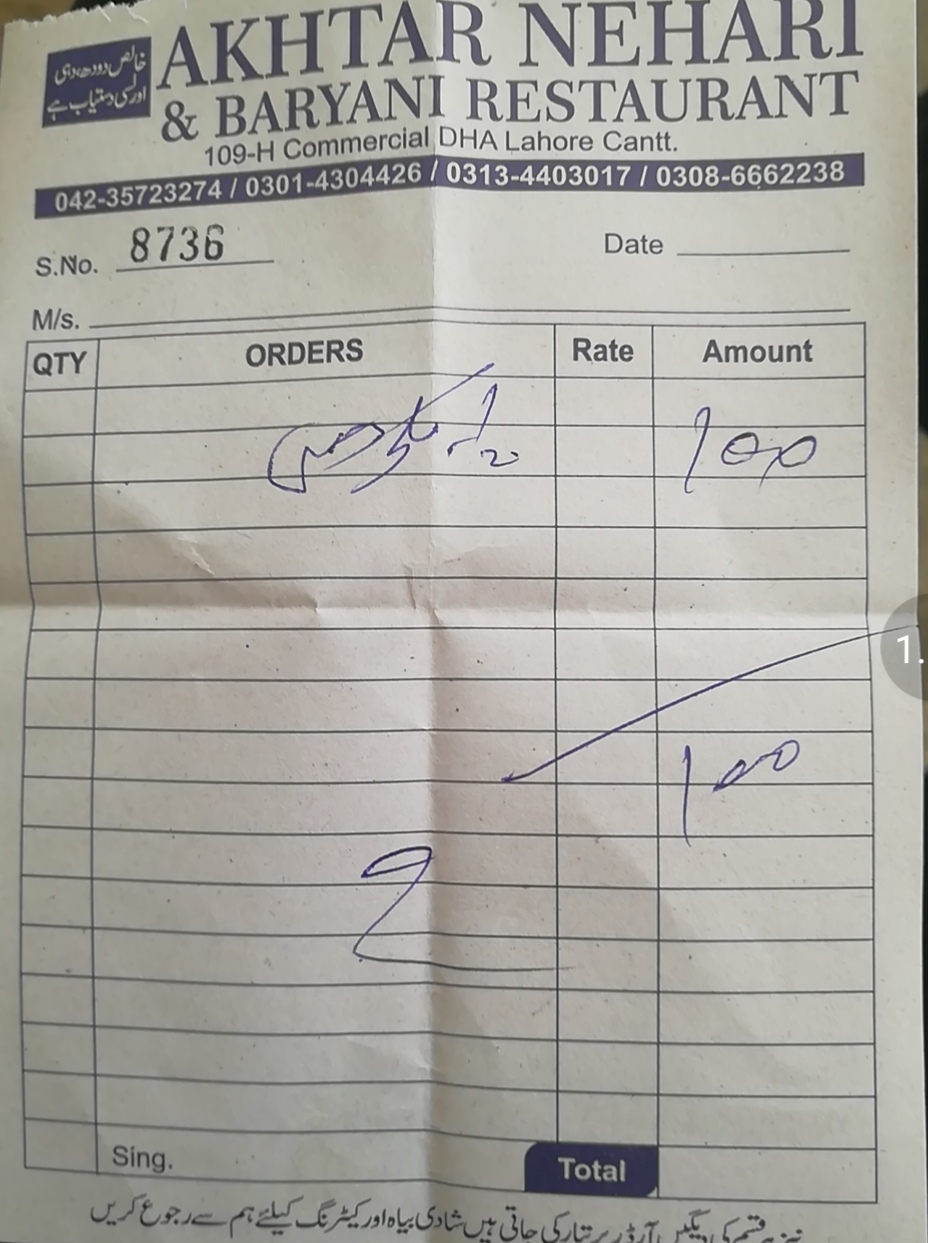 خالص دودھ، دہی
اور لسی دستیاب ہے
AKHTAR NEHARI
& BARYANI RESTAURANT
109-H Commercial DHA Lahore Cantt.
042-35723274 / 0301-4304426 / 0313-4403017 / 0308-6662238
S.No. 8736 Date
M/s.
QTY ORDERS Rate Amount
100
100
Sing. Total
قسم کی دیگیں آرڈر پر تیار کی جاتی ہیں شادی بیاہ اور کیٹرنگ کیلئے ہم سے رجوع کریں
1.